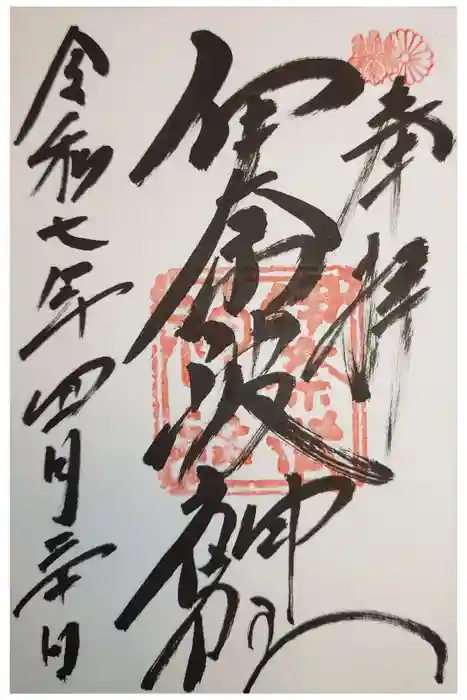 奉拝
伊奈波神社
令和七年四月三十日